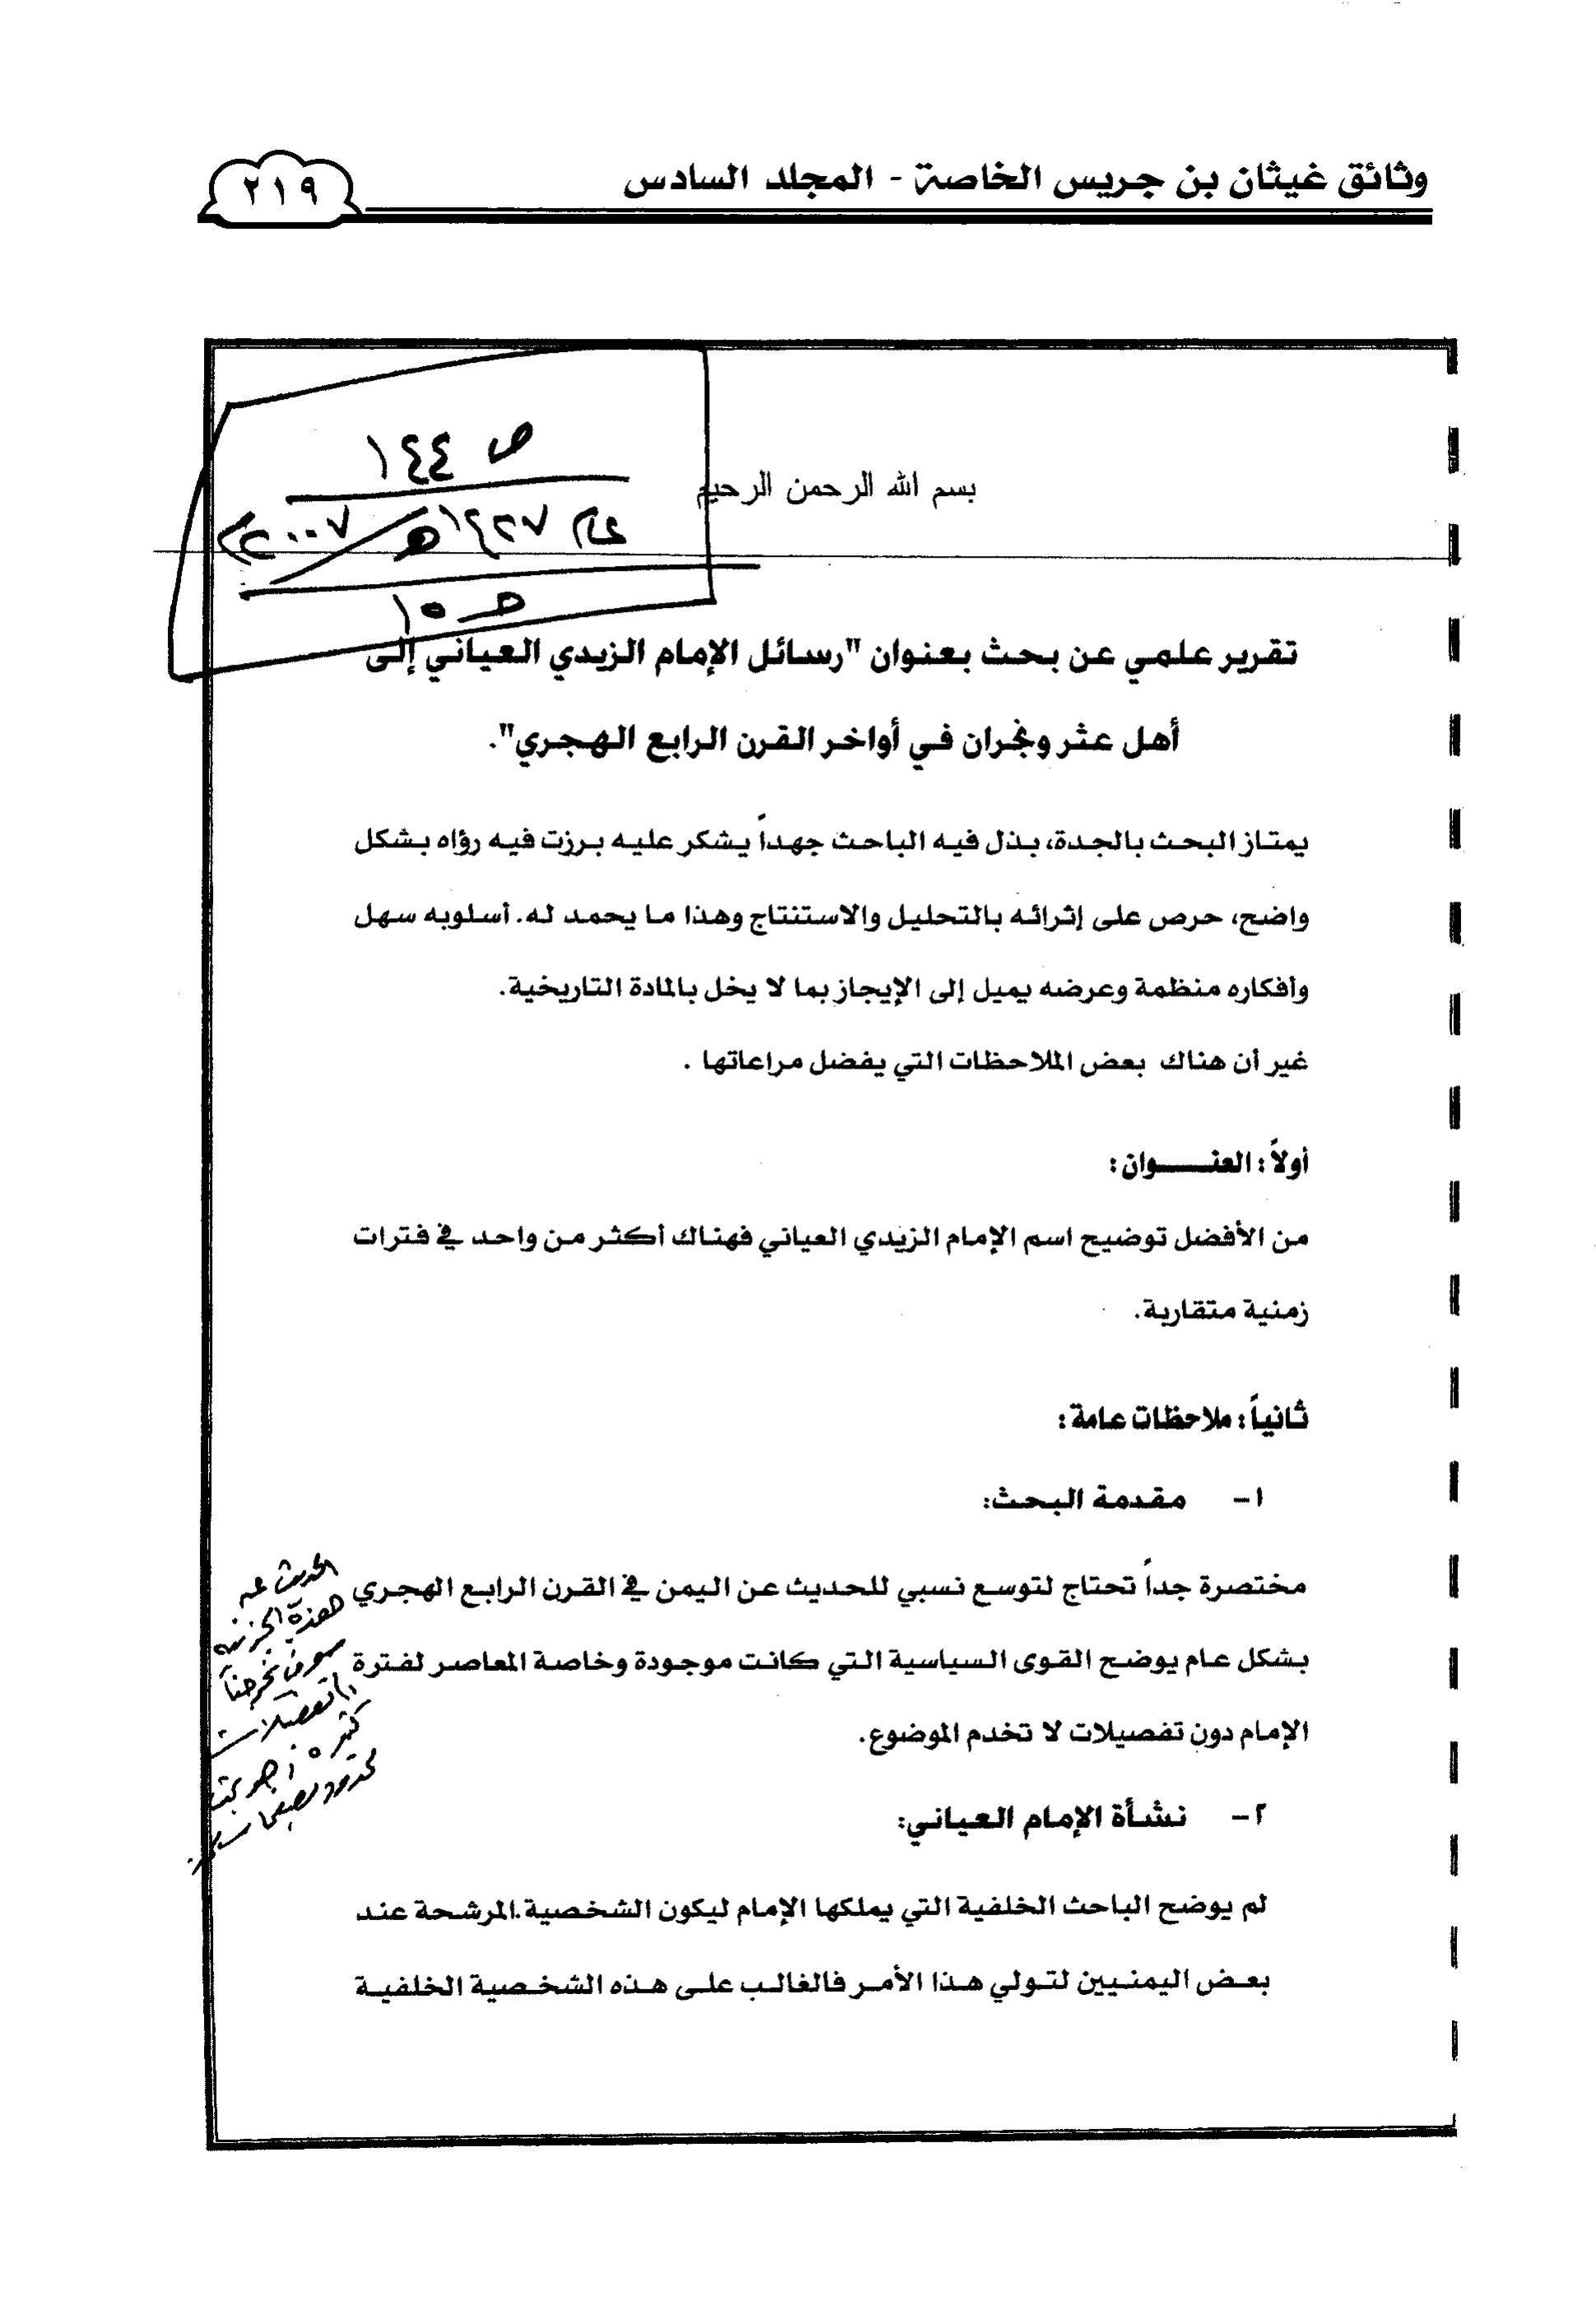 وثائق غيثان بن جريس الخاصة - المجلد السادس
٢١٩
ص ١٤٤
عام ١٤٢٧هـ / ٢٠٠٧م
بسم الله الرحمن الرحيم
تقرير علمي عن بحث بعنوان "رسائل الإمام الزيدي العياني إلى
أهل عثر ونجران في أواخر القرن الرابع الهجري".
يمتاز البحث بالجدة، بذل فيه الباحث جهداً يشكر عليه برزت فيه رؤاه بشكل
واضح، حرص على إثرائه بالتحليل والاستنتاج وهذا ما يحمد له. أسلوبه سهل
وأفكاره منظمة وعرضه يميل إلى الإيجاز بما لا يخل بالمادة التاريخية.
غير أن هناك بعض الملاحظات التي يفضل مراعاتها .
أولاً : العنـــــوان :
من الأفضل توضيح اسم الإمام الزيدي العياني فهناك أكثر من واحد في فترات
زمنية متقاربة.
ثانياً : ملاحظات عامة :
١- مقدمة البحث:
مختصرة جداً تحتاج لتوسع نسبي للحديث عن اليمن في القرن الرابع الهجري
بشكل عام يوضح القوى السياسية التي كانت موجودة وخاصة المعاصر لفترة
الإمام دون تفصيلات لا تخدم الموضوع.
الحديث عن
هذه الجزئية
سوف تخرجنا
إلى تفصيلات
كثيرة
٢- نشأة الإمام العياني:
لم يوضح الباحث الخلفية التي يملكها الإمام ليكون الشخصية المرشحة عند
بعض اليمنيين لتولي هذا الأمر فالغالب على هذه الشخصية الخلفية